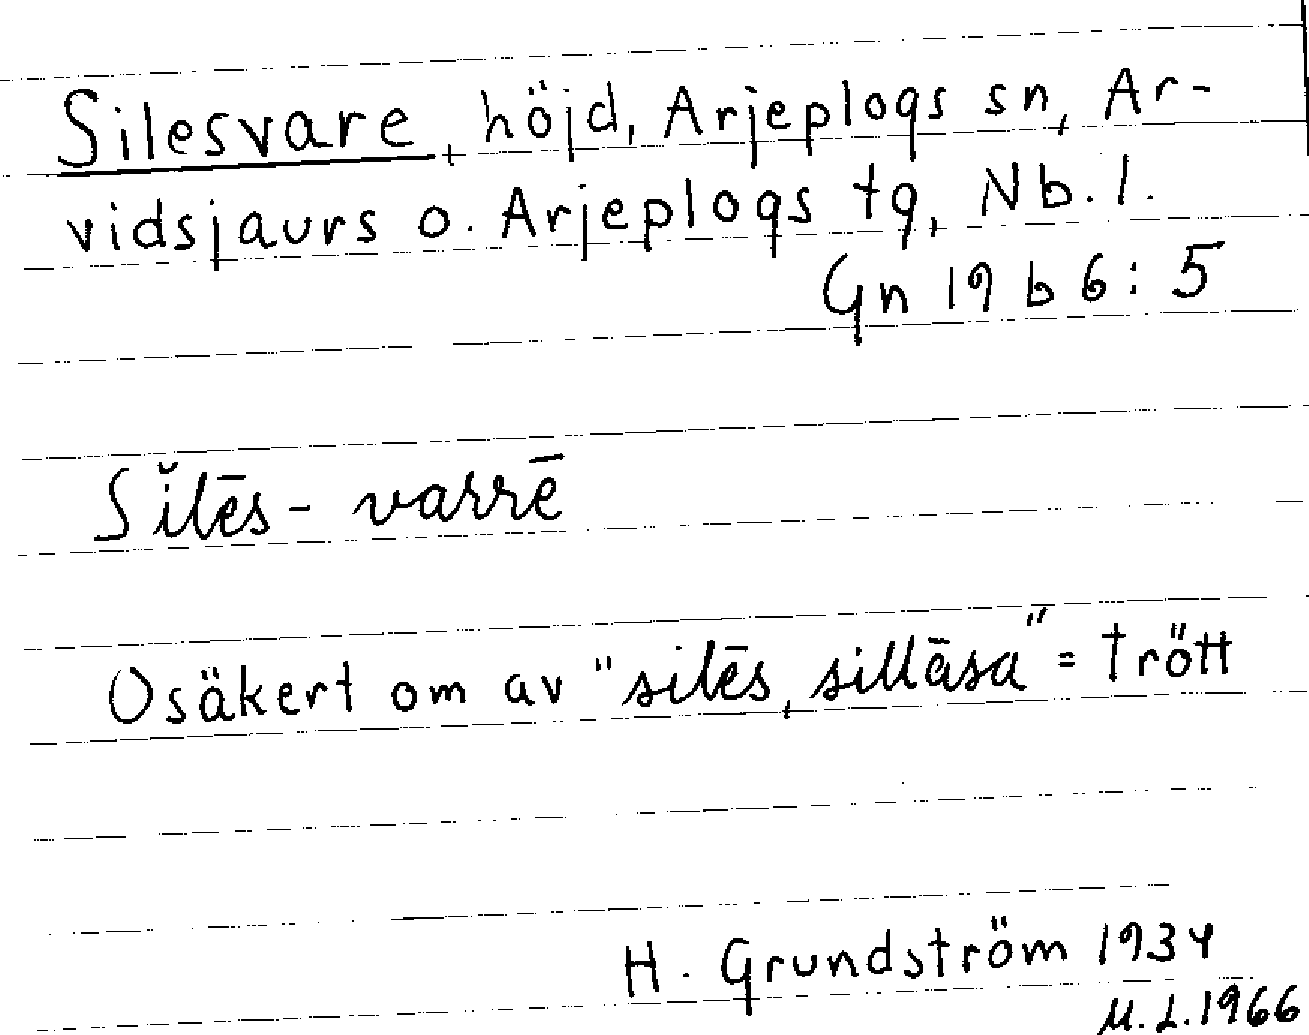 Silesvare, höjd, Arjeplogs sn, Ar-
vidsjaurs o. Arjeplogs tg, Nb. l.
Gn 19 b 6: 5
Sĭlēs- varrē
Osäkert om av "silēs, sillāsa" = trött
H. Grundström 1934
M. L. 1966